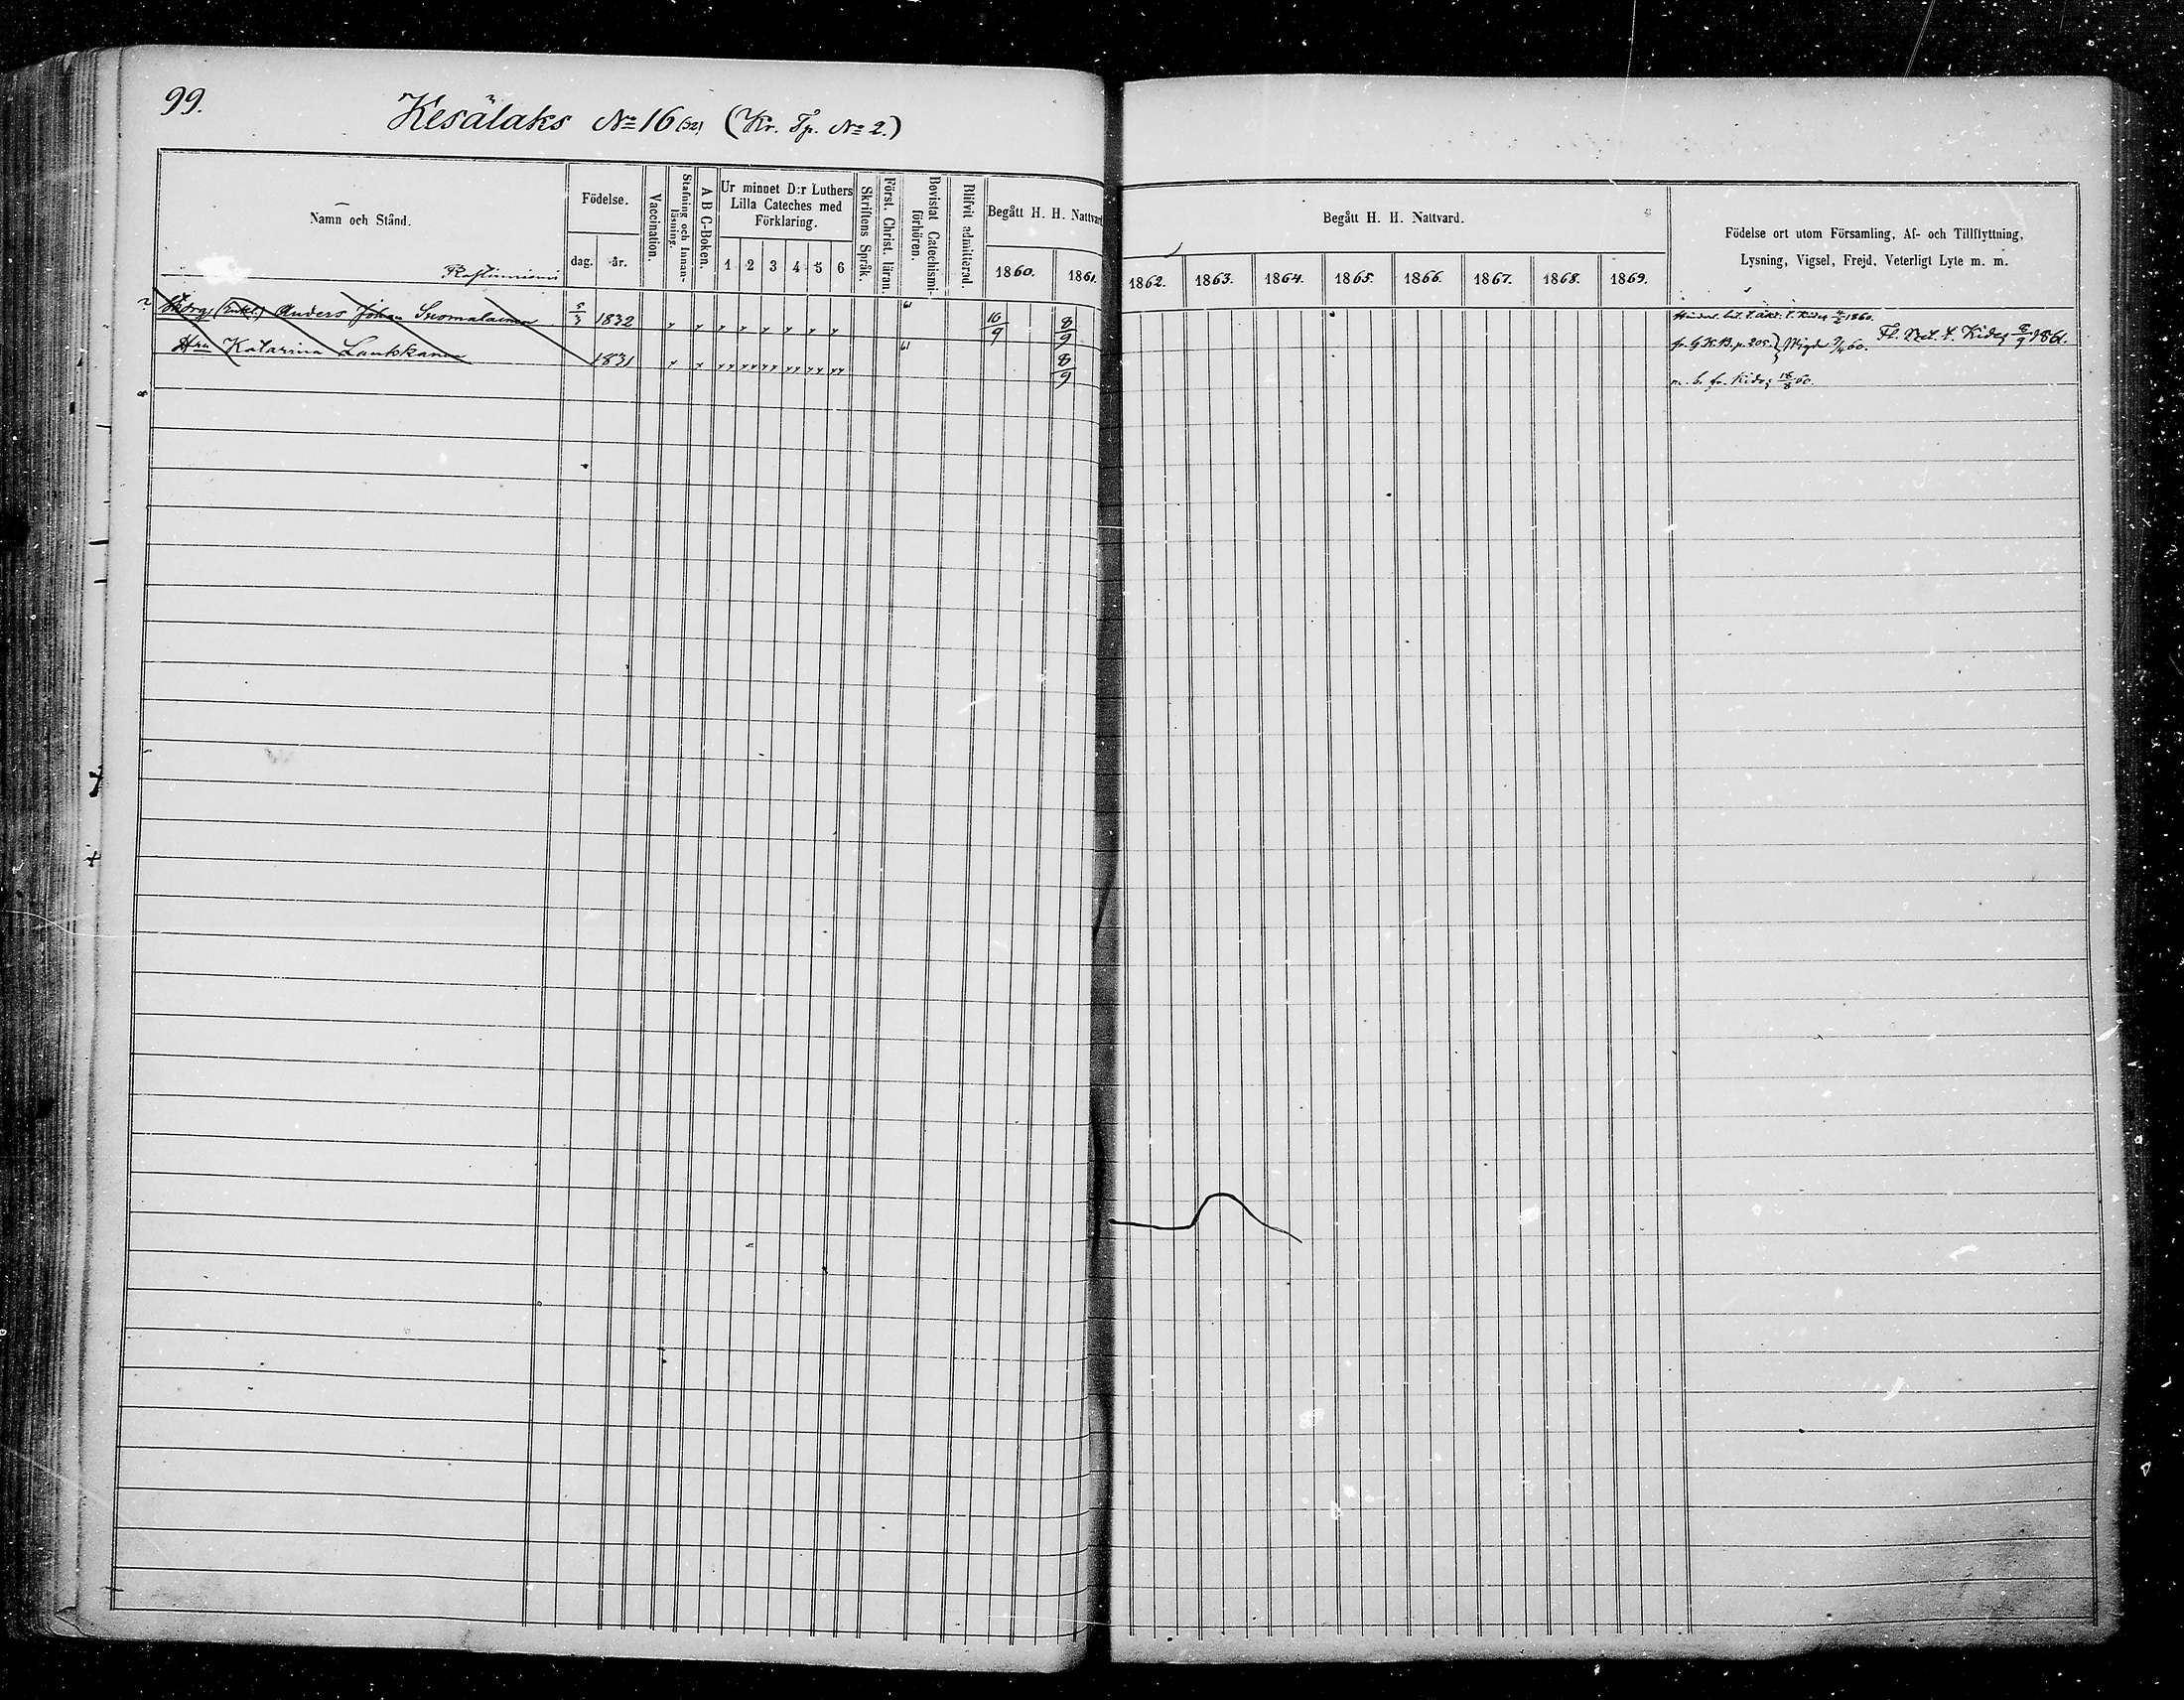 99.
Kesälaks No 16 (32) (Kr. Tp. No 2.)
Namn och Stånd.
Födelse.
dag.
år.
Vaccination.
Stafning och Innanläsning.
A B C-Boken.
Ur minnet D:r Luthers Lilla Cateches med Förklaring.
1 2 3 4 5 6
Skriftens Språk.
Först. Christ. läran.
Bevistat Catechismi-förhören.
Blifvit admitterad.
Begått H. H. Nattvard
1860. 1861.
Begått H. H. Nattvard.
1862. 1863. 1864. 1865. 1866. 1867. 1868. 1869.
Födelse ort utom Församling, Af- och Tillflyttning,
Lysning, Vigsel, Frejd, Veterligt Lyte m. m.
Anders Johan Suomalainen 5/3 1832 61 10/9 8/9
1860.
Hru Katarina Laukkanen 1831 61 8/9
fr. p. 205. Vigde 60. Fl. Bet. t. Kides 8/9 1861.
m. b. fr. Kides 18/8 60.